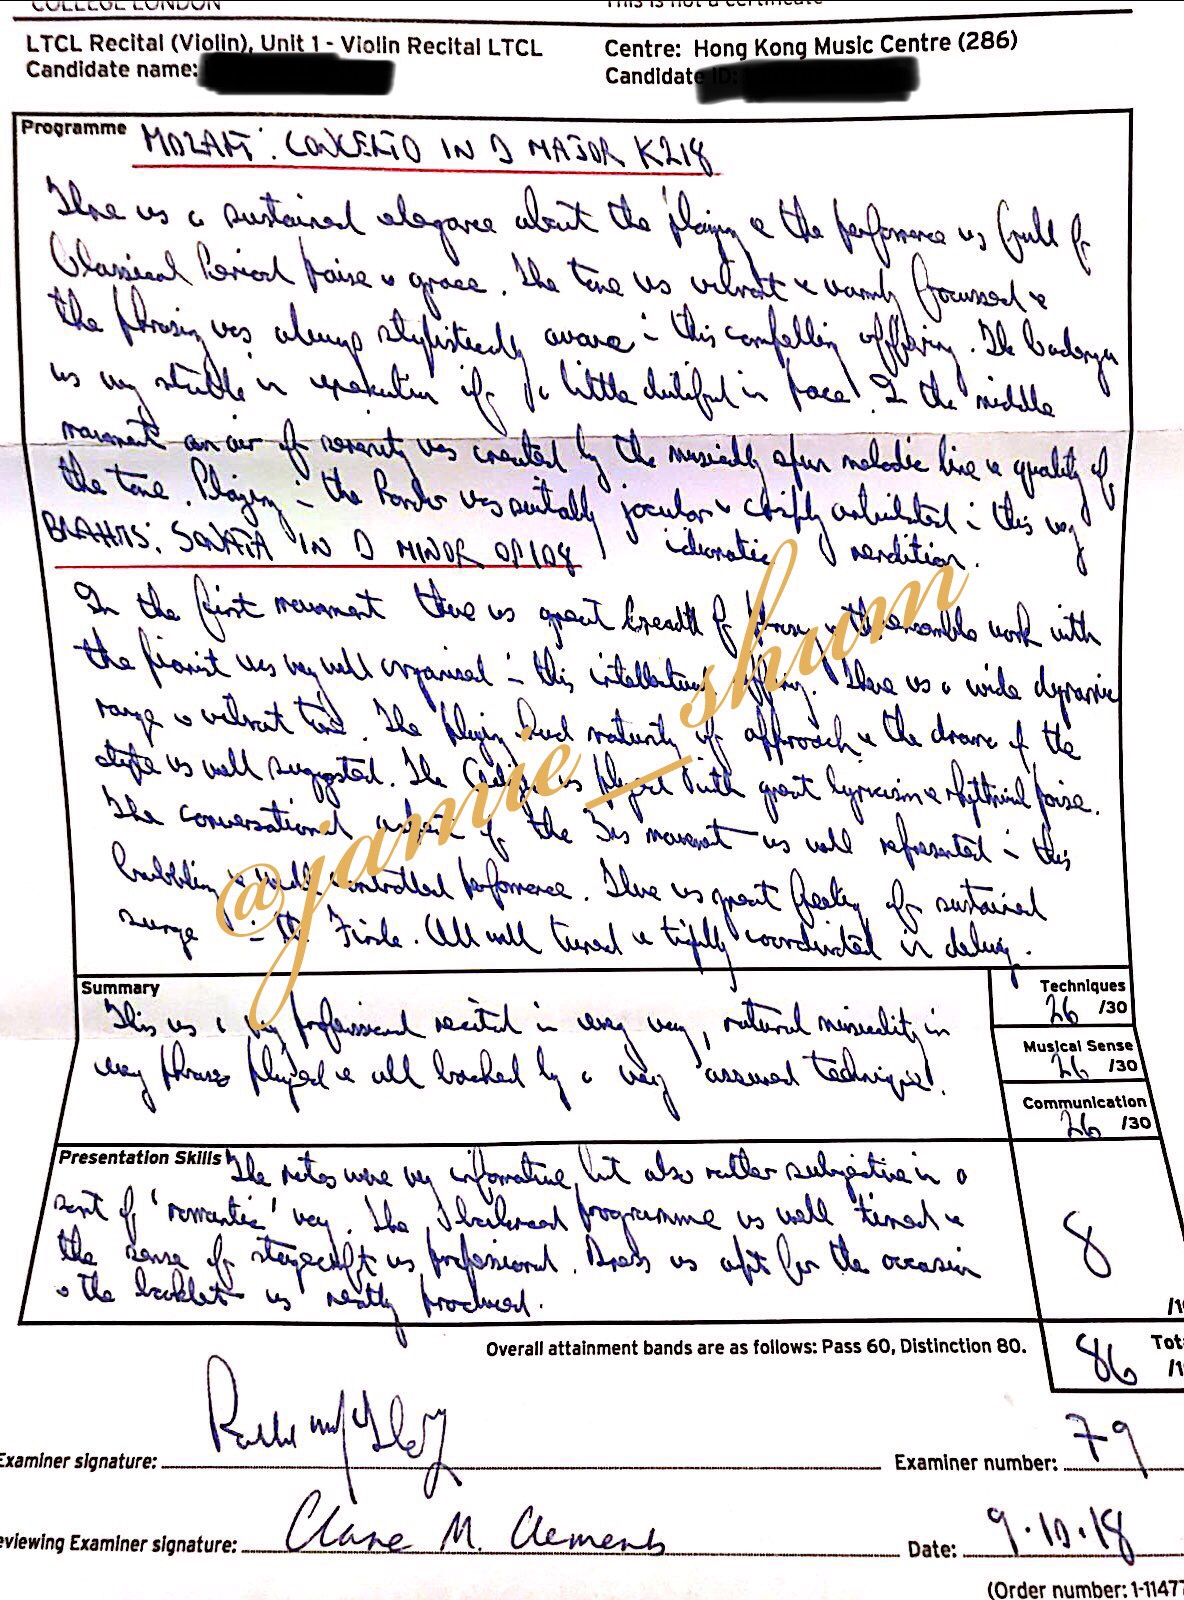 COLLEGE LONDON This is not a certificate
LTCL Recital (Violin), Unit 1 - Violin Recital LTCL Centre: Hong Kong Music Centre (286)
Candidate name: Candidate ID:
Programme MOZART: CONCERTO IN D MAJOR K218
There was a sustained elegance about the playing & the performance was full of
Classical Period poise & grace. The tone was vibrant & warmly focussed &
the phrasing was always stylistically aware in this compelling offering. The Cadenza
was very stable in execution if a little dutiful in pace! In the middle
movement an air of serenity was created by the musically spun melodic line & quality of
the tone. Playing in the Rondo was suitably jocular & crisply articulated in this very
idiomatic rendition.
BRAHMS: SONATA IN D MINOR OP 108
In the first movement there was great breadth of phrase & the ensemble work with
the pianist was very well organised in this intellectual offering. There was a wide dynamic
range & vibrant tone. The playing had maturity of approach & the drama of the
style was well suggested. The Adagio was played with great lyricism & rhythmical poise.
The conversational aspect of the 3rd movement was well represented in this
bubbling & well controlled performance. There was great feeling of sustained
surge in the Finale. All well tuned & tightly coordinated in delivery.
@jamie__shum
Summary Techniques
This was a very professional recital in every way, natural musicality in 26 /30
every phrase played & all backed by a very assured technique! Musical Sense
26 /30
Communication
26 /30
Presentation Skills The notes were very informative, but also rather subjective in a
sort of 'romantic' way. The programme was well timed &
the sense of stagecraft was professional. Dress was apt for the occasion
& the booklet was neatly produced.
8
Overall attainment bands are as follows: Pass 60, Distinction 80.
86
Examiner signature: Examiner number: 79
Reviewing Examiner signature: Clare M. Clements Date: 9.10.18
(Order number: 1-11477